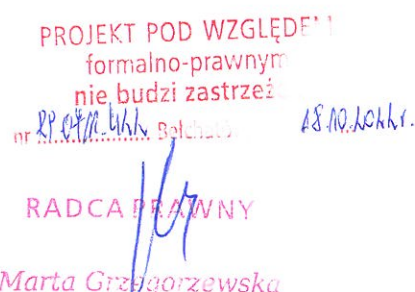 PROJEKT POD WZGLĘDEM
formalno-prawnym
nie budzi zastrzeż
nr Bełchatów 18.10.2022r.
RADCA PRAWNY
Marta Grzegorzewska